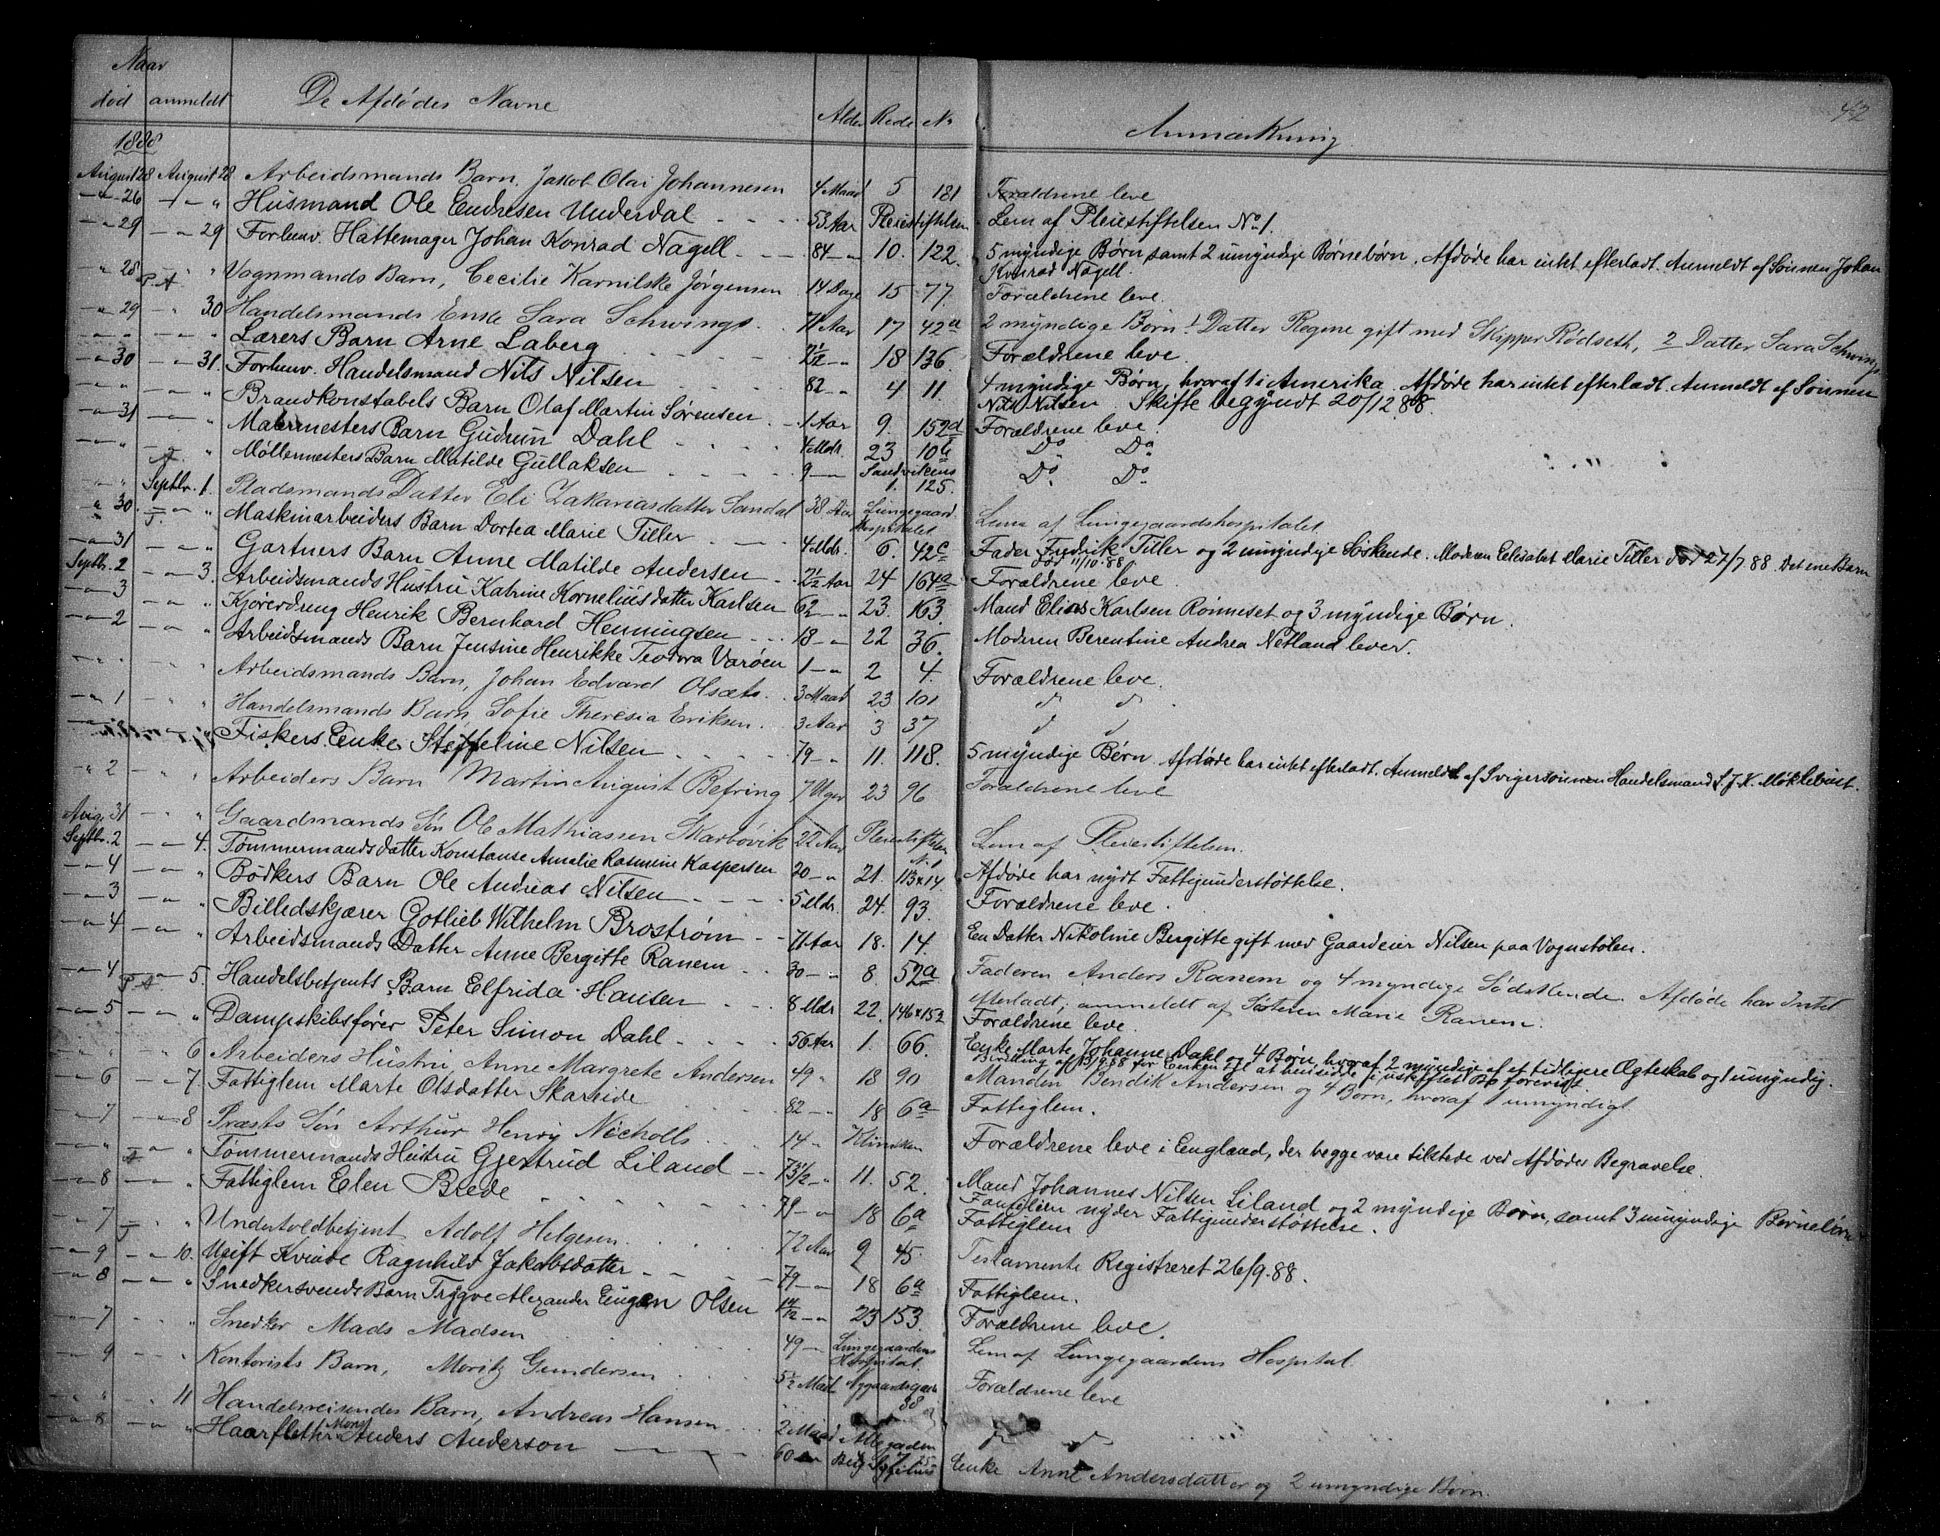 42
Naar
død anmeldt De Afdødes Navne Alder Rode No Anmærkning
1888
August 28 August 28 Arbeidsmands Barn, Jakob Olai Johannesen 4 Maad 5 181 Forældrene leve
-"- 26 -"- " Husmand Ole Endresen Underdal 53 Aar Pleiestiftelsen Lem af Pleiestiftelsen No 1.
-"- 29 -"- 29 Forhenv. Hattemager Johan Konrad Nagell 84 -"- 10. 122. 5 myndige Børn samt 2 umyndige Børnebørn. Afdøde har intet efterladt. Anmeldt af Sønnen Johan
Konrad Nagell.
" 28 P.A " Vognmands Barn, Cecilie Karnilske Jørgensen 14 Dage 15 77 Forældrene leve.
-"- 29 -"- 30 Handelsmands Enke Sara Schwings. 71 Aar 17 42a 2 myndige Børn 1 Datter Regene gift med Skipper Rødseth, 2 Datter Sara Schwings
" " " Lærers Barn Arne Laberg 2 1/12 -"- 18 136. Forældrene leve.
-"- 30 -"- 31. Forhenv. Handelsmand Nils Nilsen 82 -"- 4 11. 4 myndige Børn, hvoraf 1 i Amerika. Afdøde har intet efterladt. Anmeldt af Sønnen
Nils Nilsen Skifte begyndt 20/12 88.
" " " Brandkonstabels Barn Olaf Martin Sørensen 1 Aar 9. 152d Forældrene leve.
-"- 31 " Malermesters Barn Gudrun Dahl 4 Mdr. 23 10b Do Do
" " Møllermesters Barn Matilde Gullaksen 9 -"- Sandvikens 1. 125. Do. Do.
" " Septbr. 1. Pladsmands Datter Eli Zakariasdatter Sandal 38 Aar Lungegaards-
hospitalet Lem af Lungegaardshospitalet
" 30. J. " Maskinarbeiders Barn Dortea Marie Tiller 4 Mdr. 6. 42c Fader Fredrik Tiller og 2 umyndige Søskende. Moderen Elisabet Marie Tiller død 27/7 88. Det ene Barn
død 11/10.88.
-"- 31 -"- " Gartners Barn Anne Matilde Andersen 2 1/2 Aar 24 164a Forældrene leve.
Septbr. 2 -"- 3. Arbeidsmands Hustru Katrine Korneliusdatter Karlsen 62 -"- 23. 163. Mand Elias Karlsen Rønneset og 3 myndige Børn.
-"- 3 -"- " Kjøredreng Henrik Bernhard Henningsen 18 -"- 22 36. Moderen Berentine Andrea Netland lever.
-"- 2 -"- " Arbeidsmands Barn Jensine Henrikke Teodora Varøen 1 -"- 2 4. Forældrene leve.
" " " Arbeidsmands Barn, Johan Edvard Olsæts. 3 Maad 23 101 d d
-"- 1 " Handelsmands Barn, Sofie Theresia Eriksen. 3 Aar 3 37 d d
Fiskers Enke Steffeline Nilsen 79 -"- 11. 118. 5 myndige Børn. Afdøde har intet efterladt. Anmeldt af Svigersønnen Handelsmand S. J. K. Møklebust.
-"- 2 -"- " Arbeiders Barn Martin August Befring 7 Uger 23 96 Forældrene leve
Aug. 31 -"- " Gaardmands Søn Ole Mathiassen Skarbøvik 22 Aar Pleiestiftelsen N. 1 Lem af Pleiestiftelsen.
Septbr. 2 -"- 4. Tømmermands datter Konstanse Amalie Rasmine Kaspersen 20 -"- 21. 113x14. Afdøde har nydt Fattigunderstøttelse.
-"- 4 -"- " Bødkers Barn Ole Andreas Nilsen 5 Mdr. 24. 93. Forældrene leve.
-"- 3 -"- " Billedskjærer Gotlieb Wilhelm Brostrøm 71 Aar 18. 14. En Datter Nikoline Bergitte gift med Gaardeier Nilsen paa Vognstølen.
-"- 4 -"- " Arbeidsmands Datter Anne Bergitte Ranem 30 -"- 8. 52a Faderen Anders Ranem og 4 myndige Sødskende. Afdøde har Intet
efterladt, anmeldt af Søsteren Marie Ranem.
-"- 4 P.A 5. Handelsbetjents Barn Elfrida Hansen 8 Mdr 22. 146x152 Forældrene leve.
-"- 5 -"- " Dampskibsfører Peter Simon Dahl 56 Aar 1. 66. Enke Marte Johanne Dahl og 4 Børn, hvoraf 2 myndige af et tidligere Ægteskab og 1 umyndig.
" " 6 Arbeiders Hustru, Anne Margrete Andersen 49 " 18 90 Manden Bendik Andersen og 4 Børn, hvoraf 1 umyndigt
-"- 6 -"- 7. Fattiglem Marte Olsdatter Skareide 82 -"- 18 6a Fattiglem.
-"- 7 -"- 8 Præsts Søn Arthur Henry Nicholls 14 " Kliniken Forældrene leve i England, der begge vare tilstede ved Afdødes Begravelse.
" A " Tømmermands Hustru Gjertrud Liland 73 1/2 -"- 11. 52. Mand Johannes Nilsen Liland og 2 myndige Børn, samt 3 umyndige Børnebørn
Familien nyder Fattigunderstøttelse.
-"- 8 -"- " Fattiglem Elen Brede 79 -"- 18 6a Fattiglem
-"- 7 J " Undertoldbetjent Adolf Helgesen 72 Aar 9 45. Testamente Registreret 26/9.88.
-"- 9 -"- 10. Ugift Kvinde Ragnhild Jakobsdatter 79 -"- 18 6a Fattiglem.
-"- 8 -"- " Snedkersvends Barn Trygve Alexander Eugen Olsen 1 4/12 -"- 23 153. Forældrene leve.
-"- 7 " Snedker Mads Madsen 49 -"- Lungegaardens
Hospital. Lem af Lungegaardens Hospital.
-"- 9 " Kontorists Barn, Moritz Gundersen 5 1/2 Maad Nygaardsgaden 38 Forældrene leve
" " 11 Handelsreisendes Barn, Andreas Hansen 2 Maad d d
-"- 8 -"- " Haarfletter Mons Anders Anderson 60 Enke Anne Andersdatter og 2 umyndige Børn.